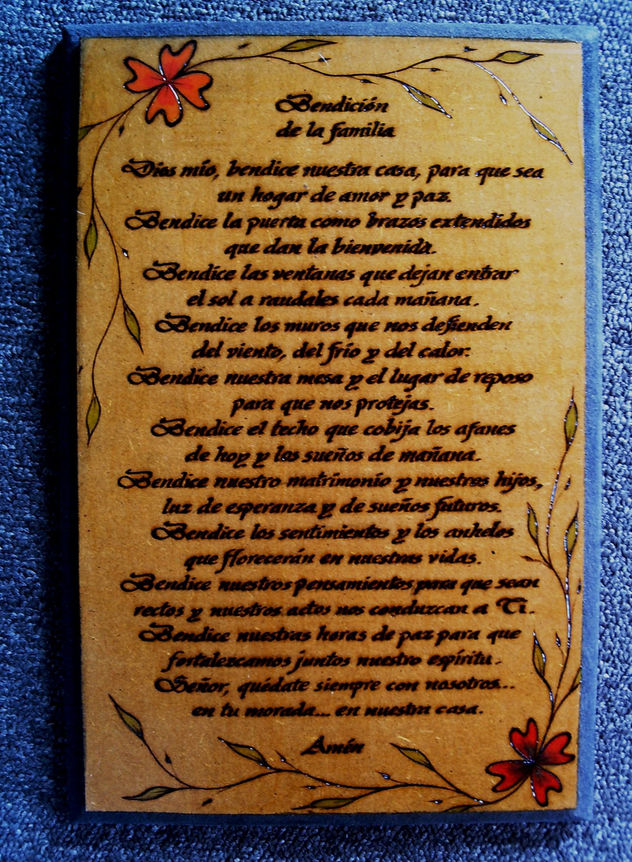 Bendición
de la familia
Dios mío, bendice nuestra casa, para que sea
un hogar de amor y paz.
Bendice la puerta como brazos extendidos
que dan la bienvenida.
Bendice las ventanas que dejan entrar
el sol a raudales cada mañana.
Bendice los muros que nos defienden
del viento, del frío y del calor.
Bendice nuestra mesa y el lugar de reposo
para que nos protejas.
Bendice el techo que cobija los afanes
de hoy y los sueños de mañana.
Bendice nuestro matrimonio y nuestros hijos,
luz de esperanza y de sueños futuros.
Bendice los sentimientos y los anhelos
que florecerán en nuestras vidas.
Bendice nuestros pensamientos para que sean
rectos y nuestros actos nos conduzcan a Ti.
Bendice nuestras horas de paz para que
fortalezcamos juntos nuestro espíritu.
Señor, quédate siempre con nosotros...
en tu morada... en nuestra casa.
Amén